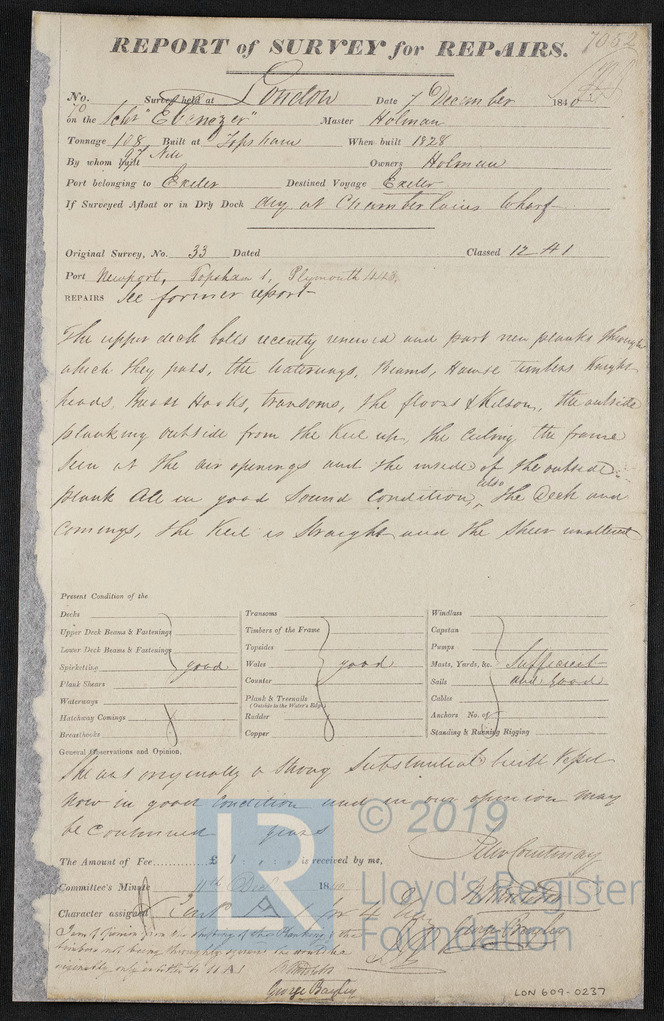 7052
REPORT of SURVEY for REPAIRS.
No. Survey held at London Date 7 December 1840
70
on the Schr "Ebenezer" Master Holman
Tonnage 108 Built at Topsham When built 1828
97 New
By whom built Owners Holman
Port belonging to Exeter Destined Voyage Exeter
If Surveyed Afloat or in Dry Dock dry at Chamberlains Wharf
Original Survey, No. 33 Dated Classed 12 A1
Port Newport, Topsham 1, Plymouth 443,
REPAIRS see former report
The upper deck bolts recently renewed and part new planks through
which they pass, the Waterways, Beams, Hawse timbers Knight
heads, Breast Hooks, transoms, the floors & Kelson, the outside
planking outside from the Keel up, the Ceiling the frame
seen at the air openings and the inside of the outside
plank All in good Sound Condition, also the Deck and
Comings, the Keel is Straight and the Sheer unaltered
Present Condition of the
Decks
Upper Deck Beams & Fastenings
Lower Deck Beams & Fastenings
Spirketting good
Plank Shears
Waterways
Hatchway Comings
Breasthooks
Transoms
Timbers of the Frame
Topsides
Wales good
Counter
Plank & Treenails
(Outside to the Water's Edge)
Rudder
Copper
Windlass
Capstan
Pumps
Masts, Yards, &c. Sufficient
Sails and Good
Cables
Anchors No. of
Standing & Running Rigging
General Observations and Opinion,
She was originally a Strong Substantial built Vessel
Now in good Condition and in our opinion may
be Continued years
The Amount of Fee £ 1 : : is received by me,
Peter Courtenay
Committee's Minute 11th Dec 1840
Character assigned A 1 for 4
George Bayley
I am of opinion from the of the Planking & the
timbers not being
originally only entitled to 11 A1
George Bayley
LON 609-0237
LR
© 2019
Lloyd's Register
Foundation